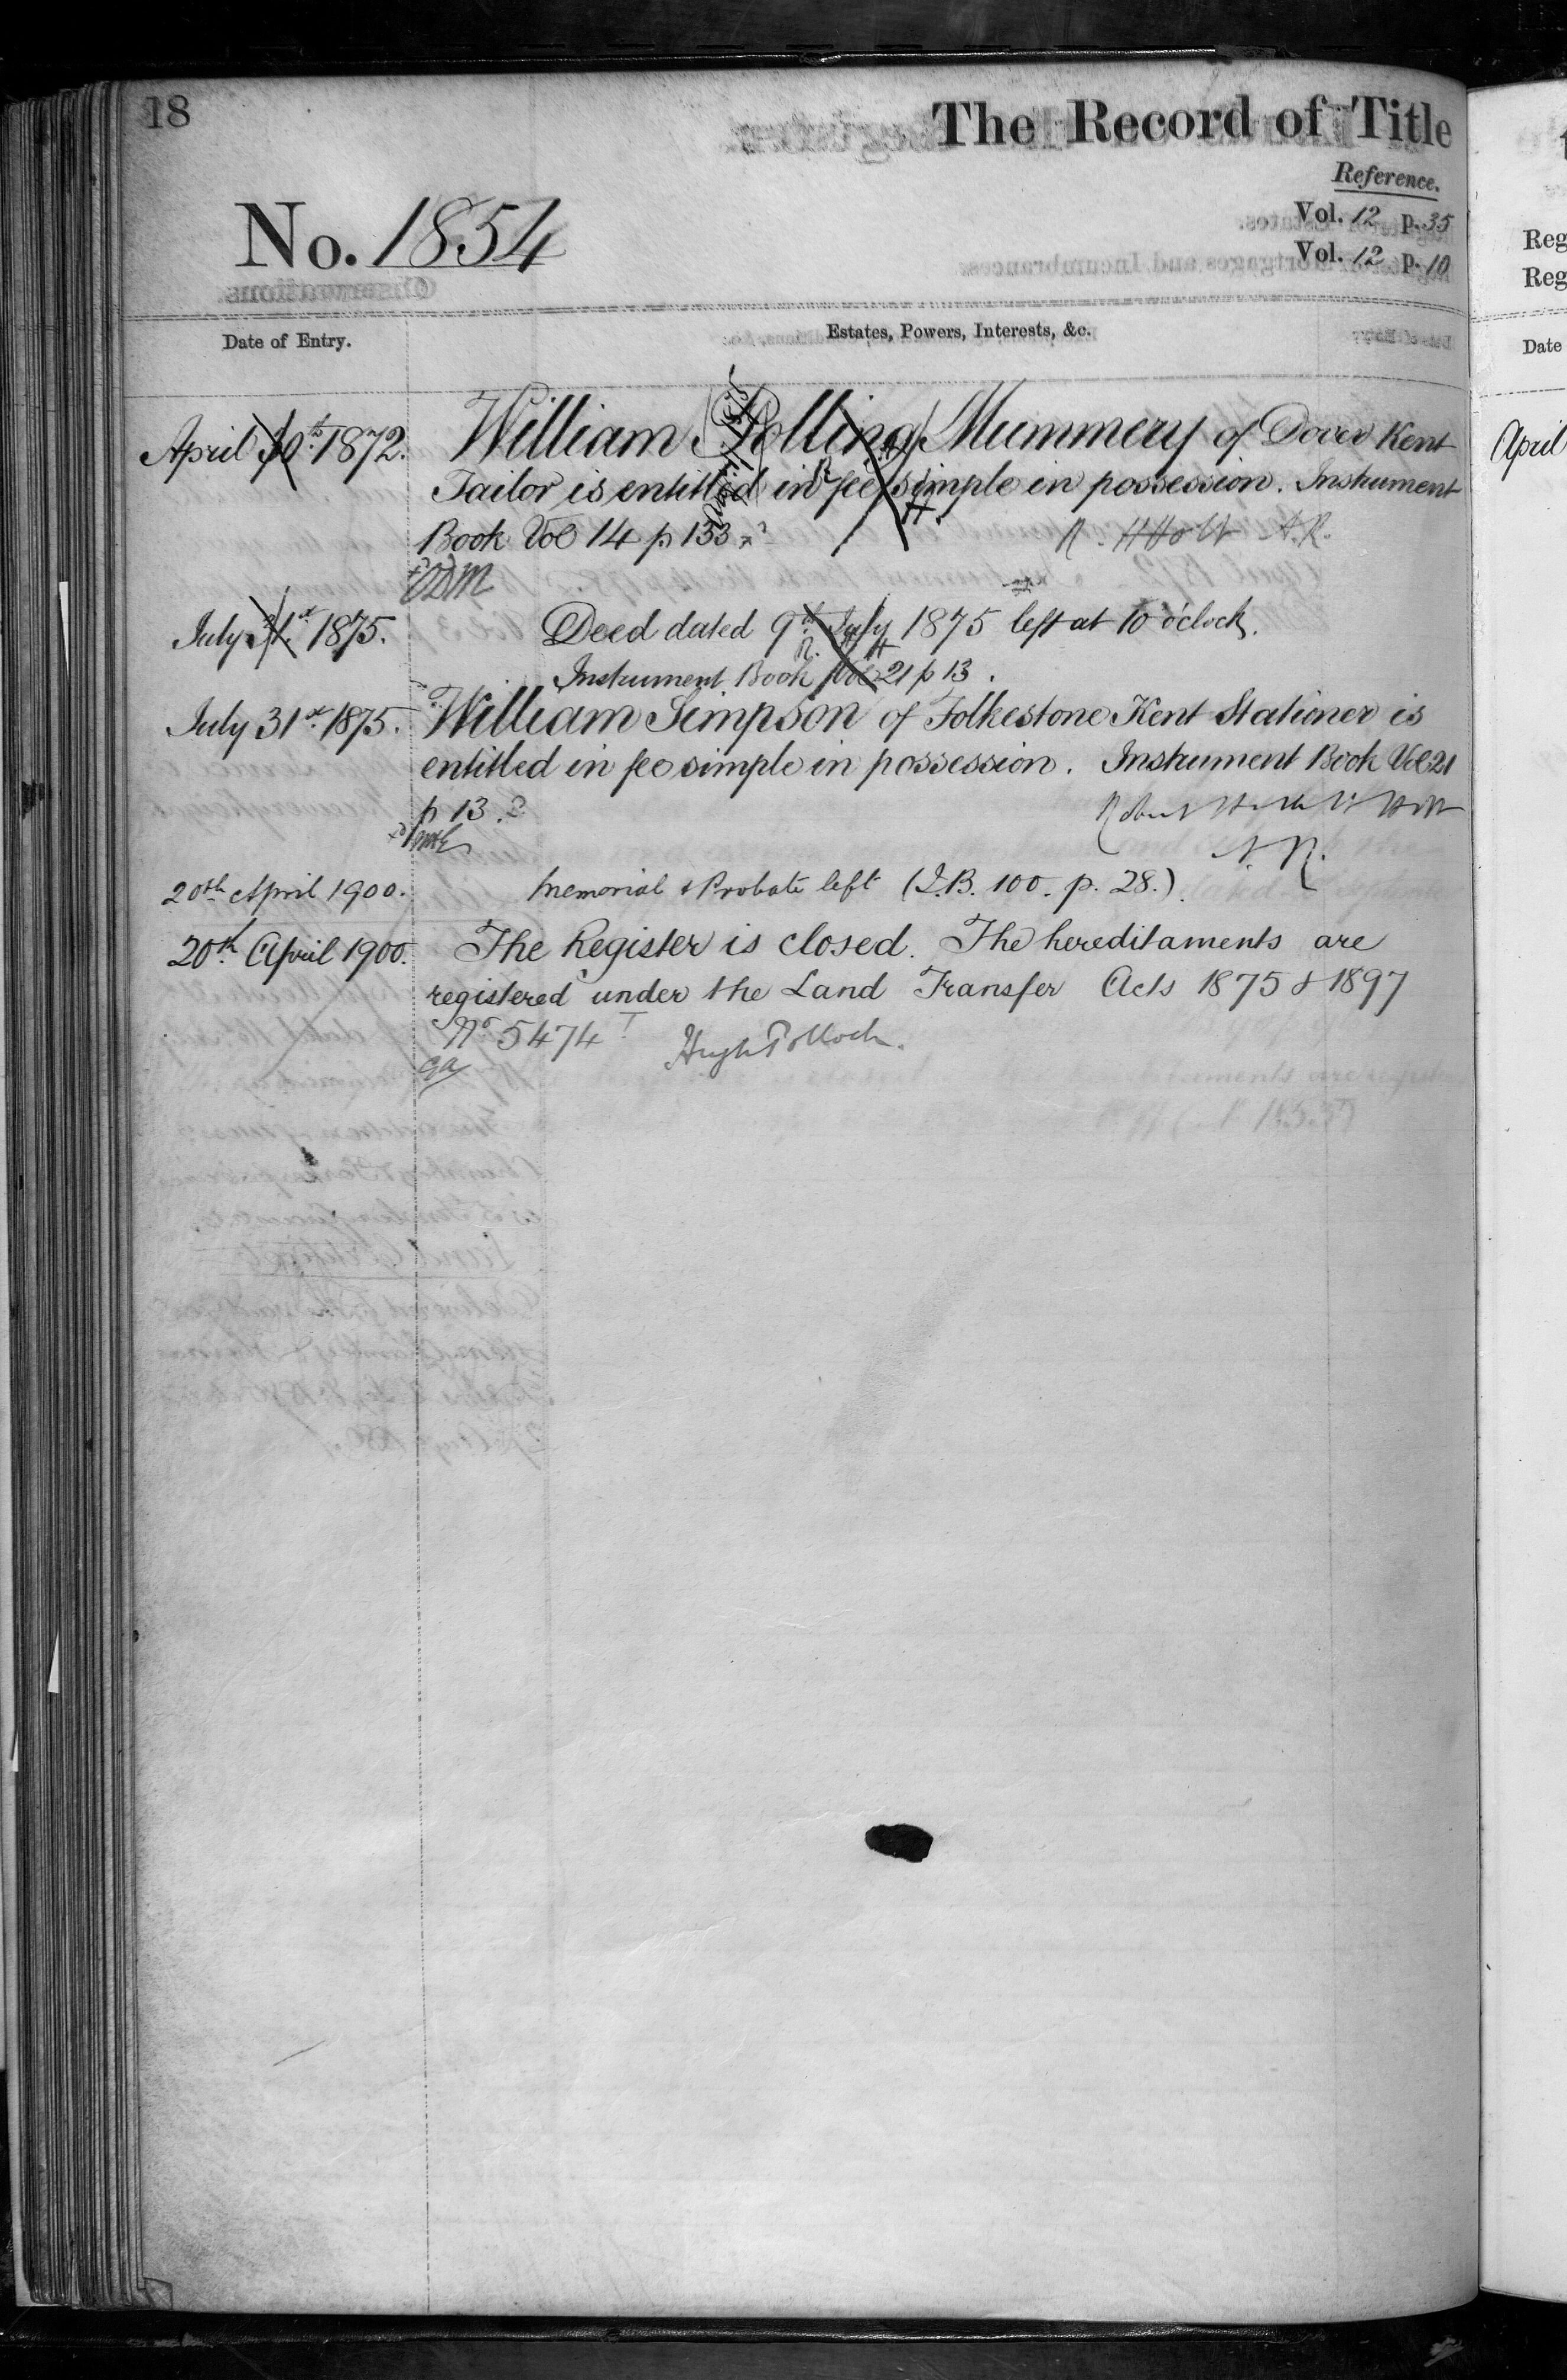 18
The Record of Title
Reference.
Vol. 12 p. 35
Vol. 12 p. 10
No. 1854
Date of Entry.
Estates, Powers, Interests, &c.
April 30th 1872.
William Polling Mummery of Dover Kent
Tailor is entitled in fee simple in possession. Instrument
Book Vol 14 p 153
R. H Holt A.R.
July 31st 1875.
Deed dated 9th July 1875 left at 10 o'clock.
Instrument Book Vol 21 p 13.
July 31st 1875.
William Simpson of Folkestone Kent Stationer is
entitled in fee simple in possession. Instrument Book Vol 21
p 13.
Robert Holt
A.R.
20th April 1900.
Memorial & Probate left (I.B. 100. p. 28.).
20th April 1900.
The Register is closed. The hereditaments are
registered under the Land Transfer Acts 1875 & 1897
No 5474
Hugh Pollock.
Reg
Reg
Date
April